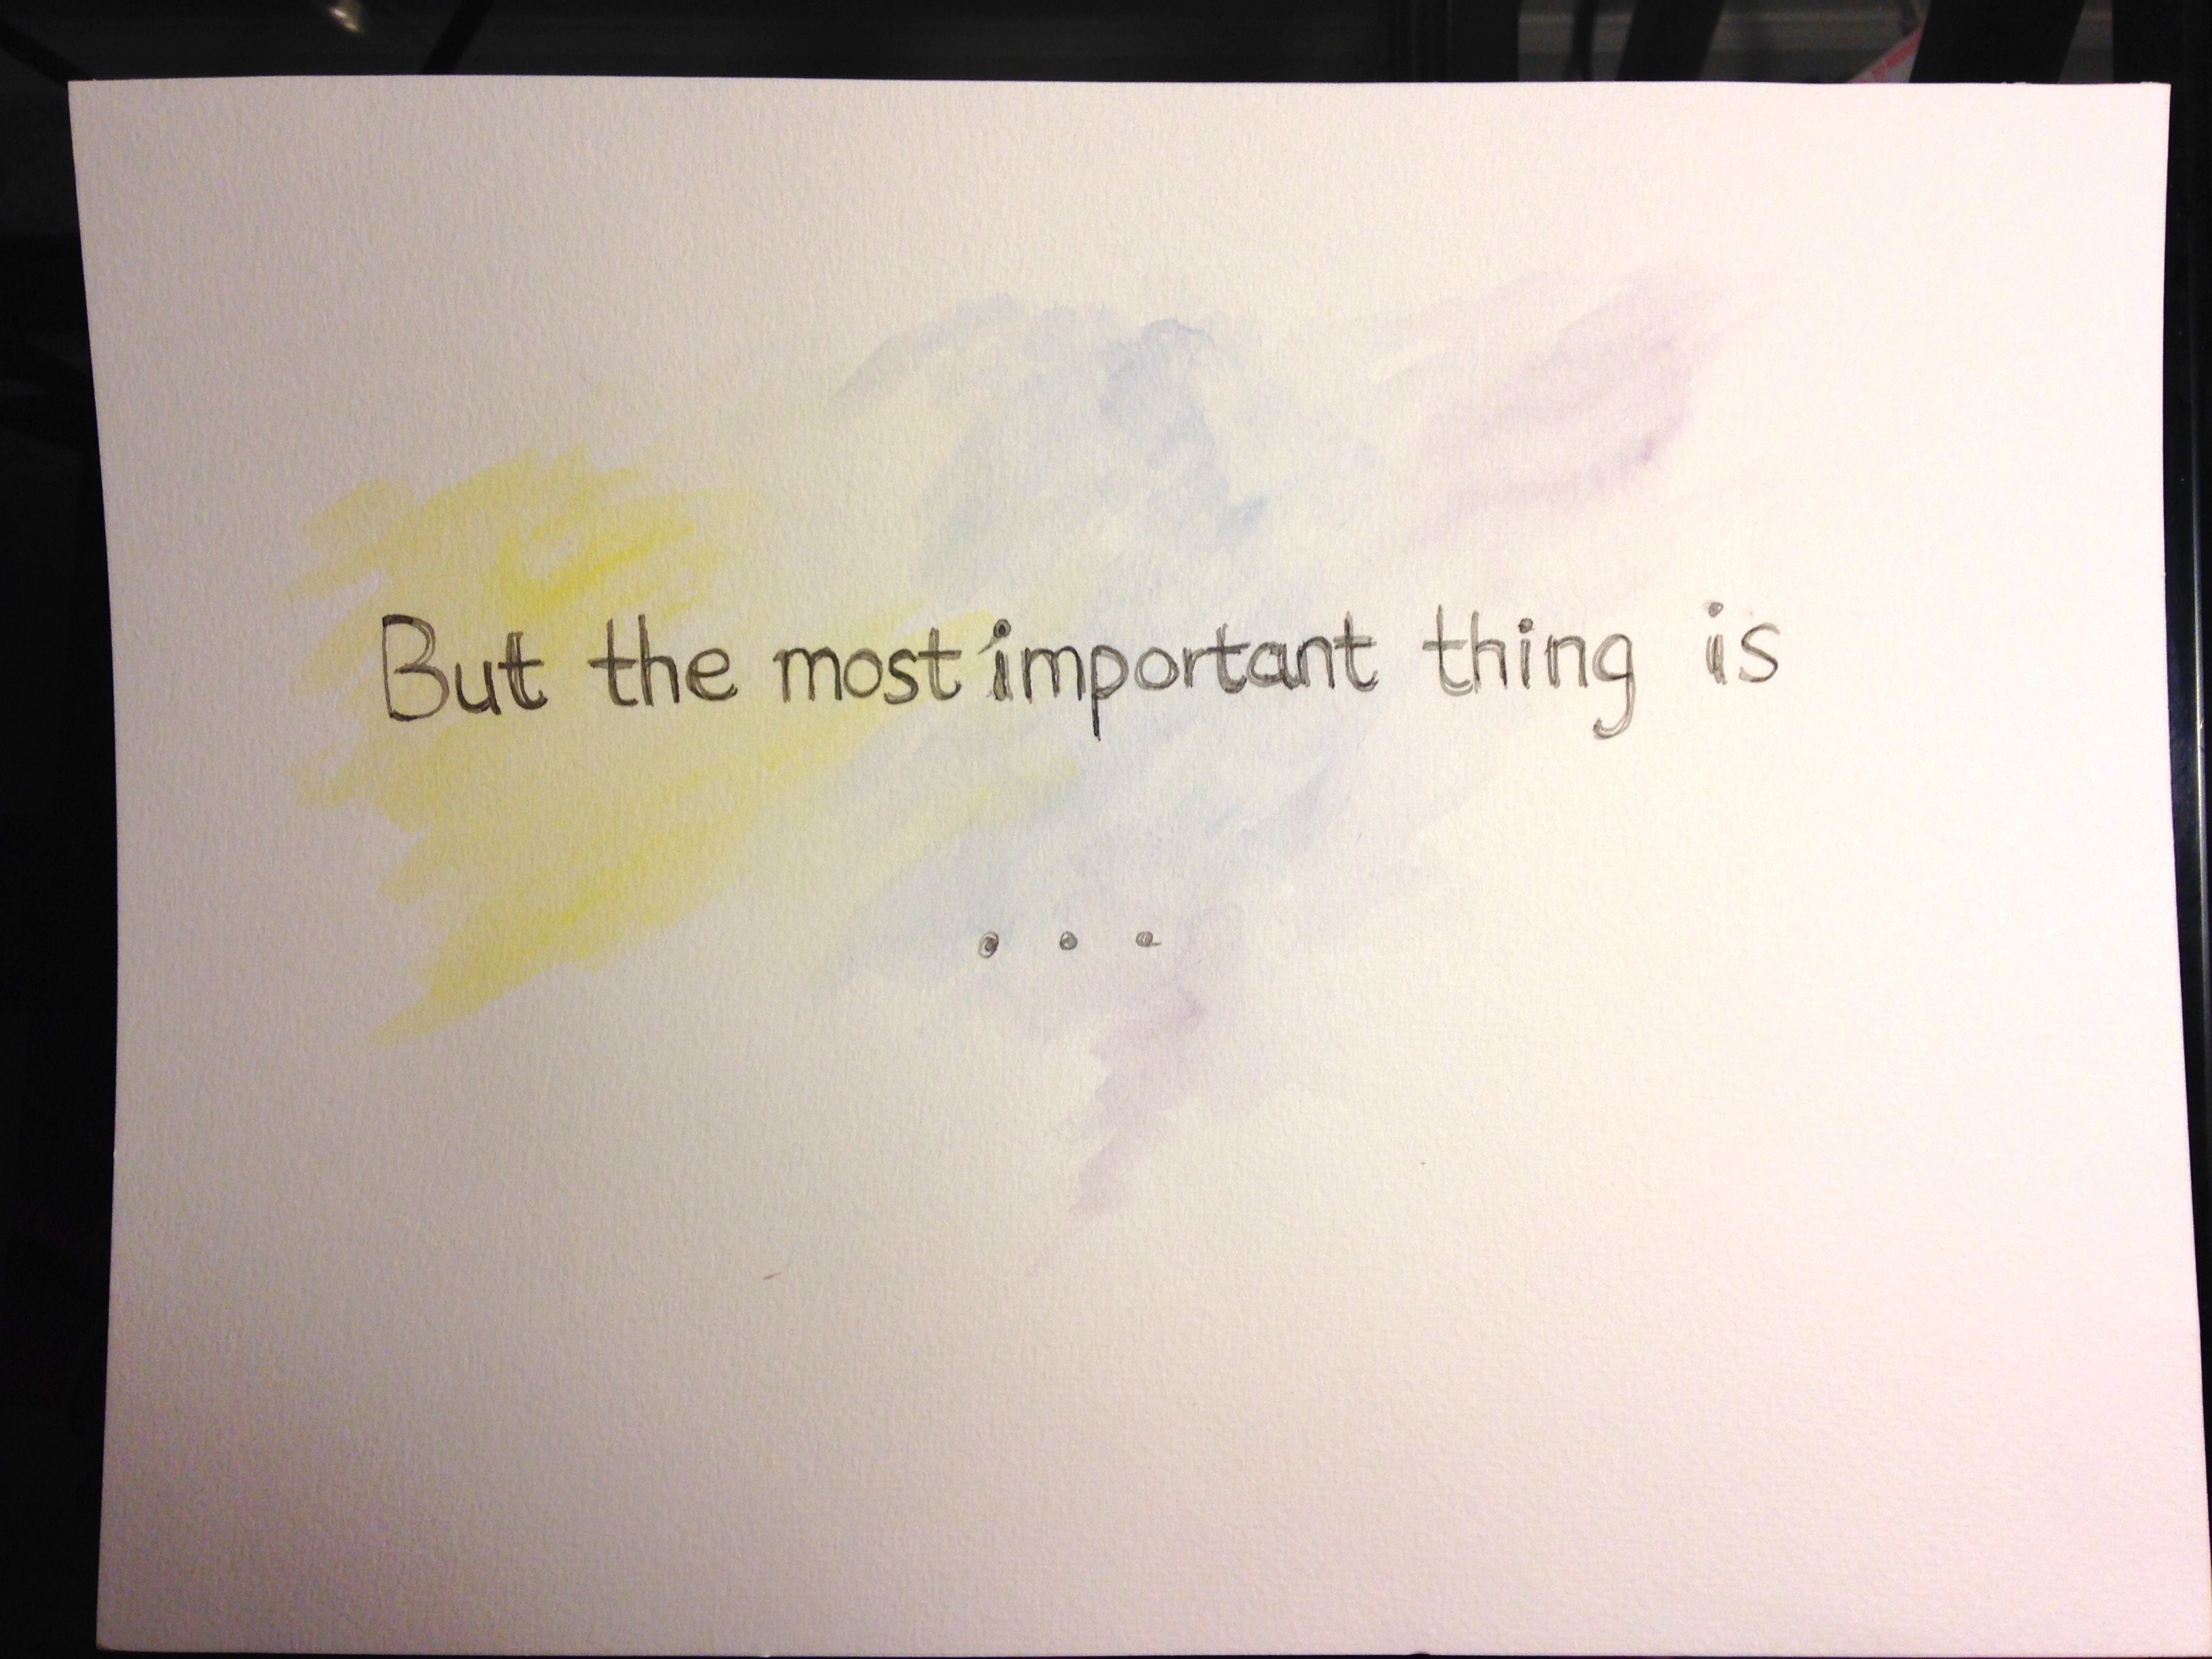 But the most important thing is
...